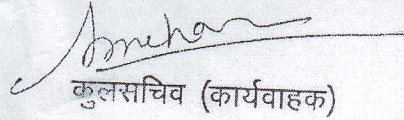 कुलसचिव (कार्यवाहक)